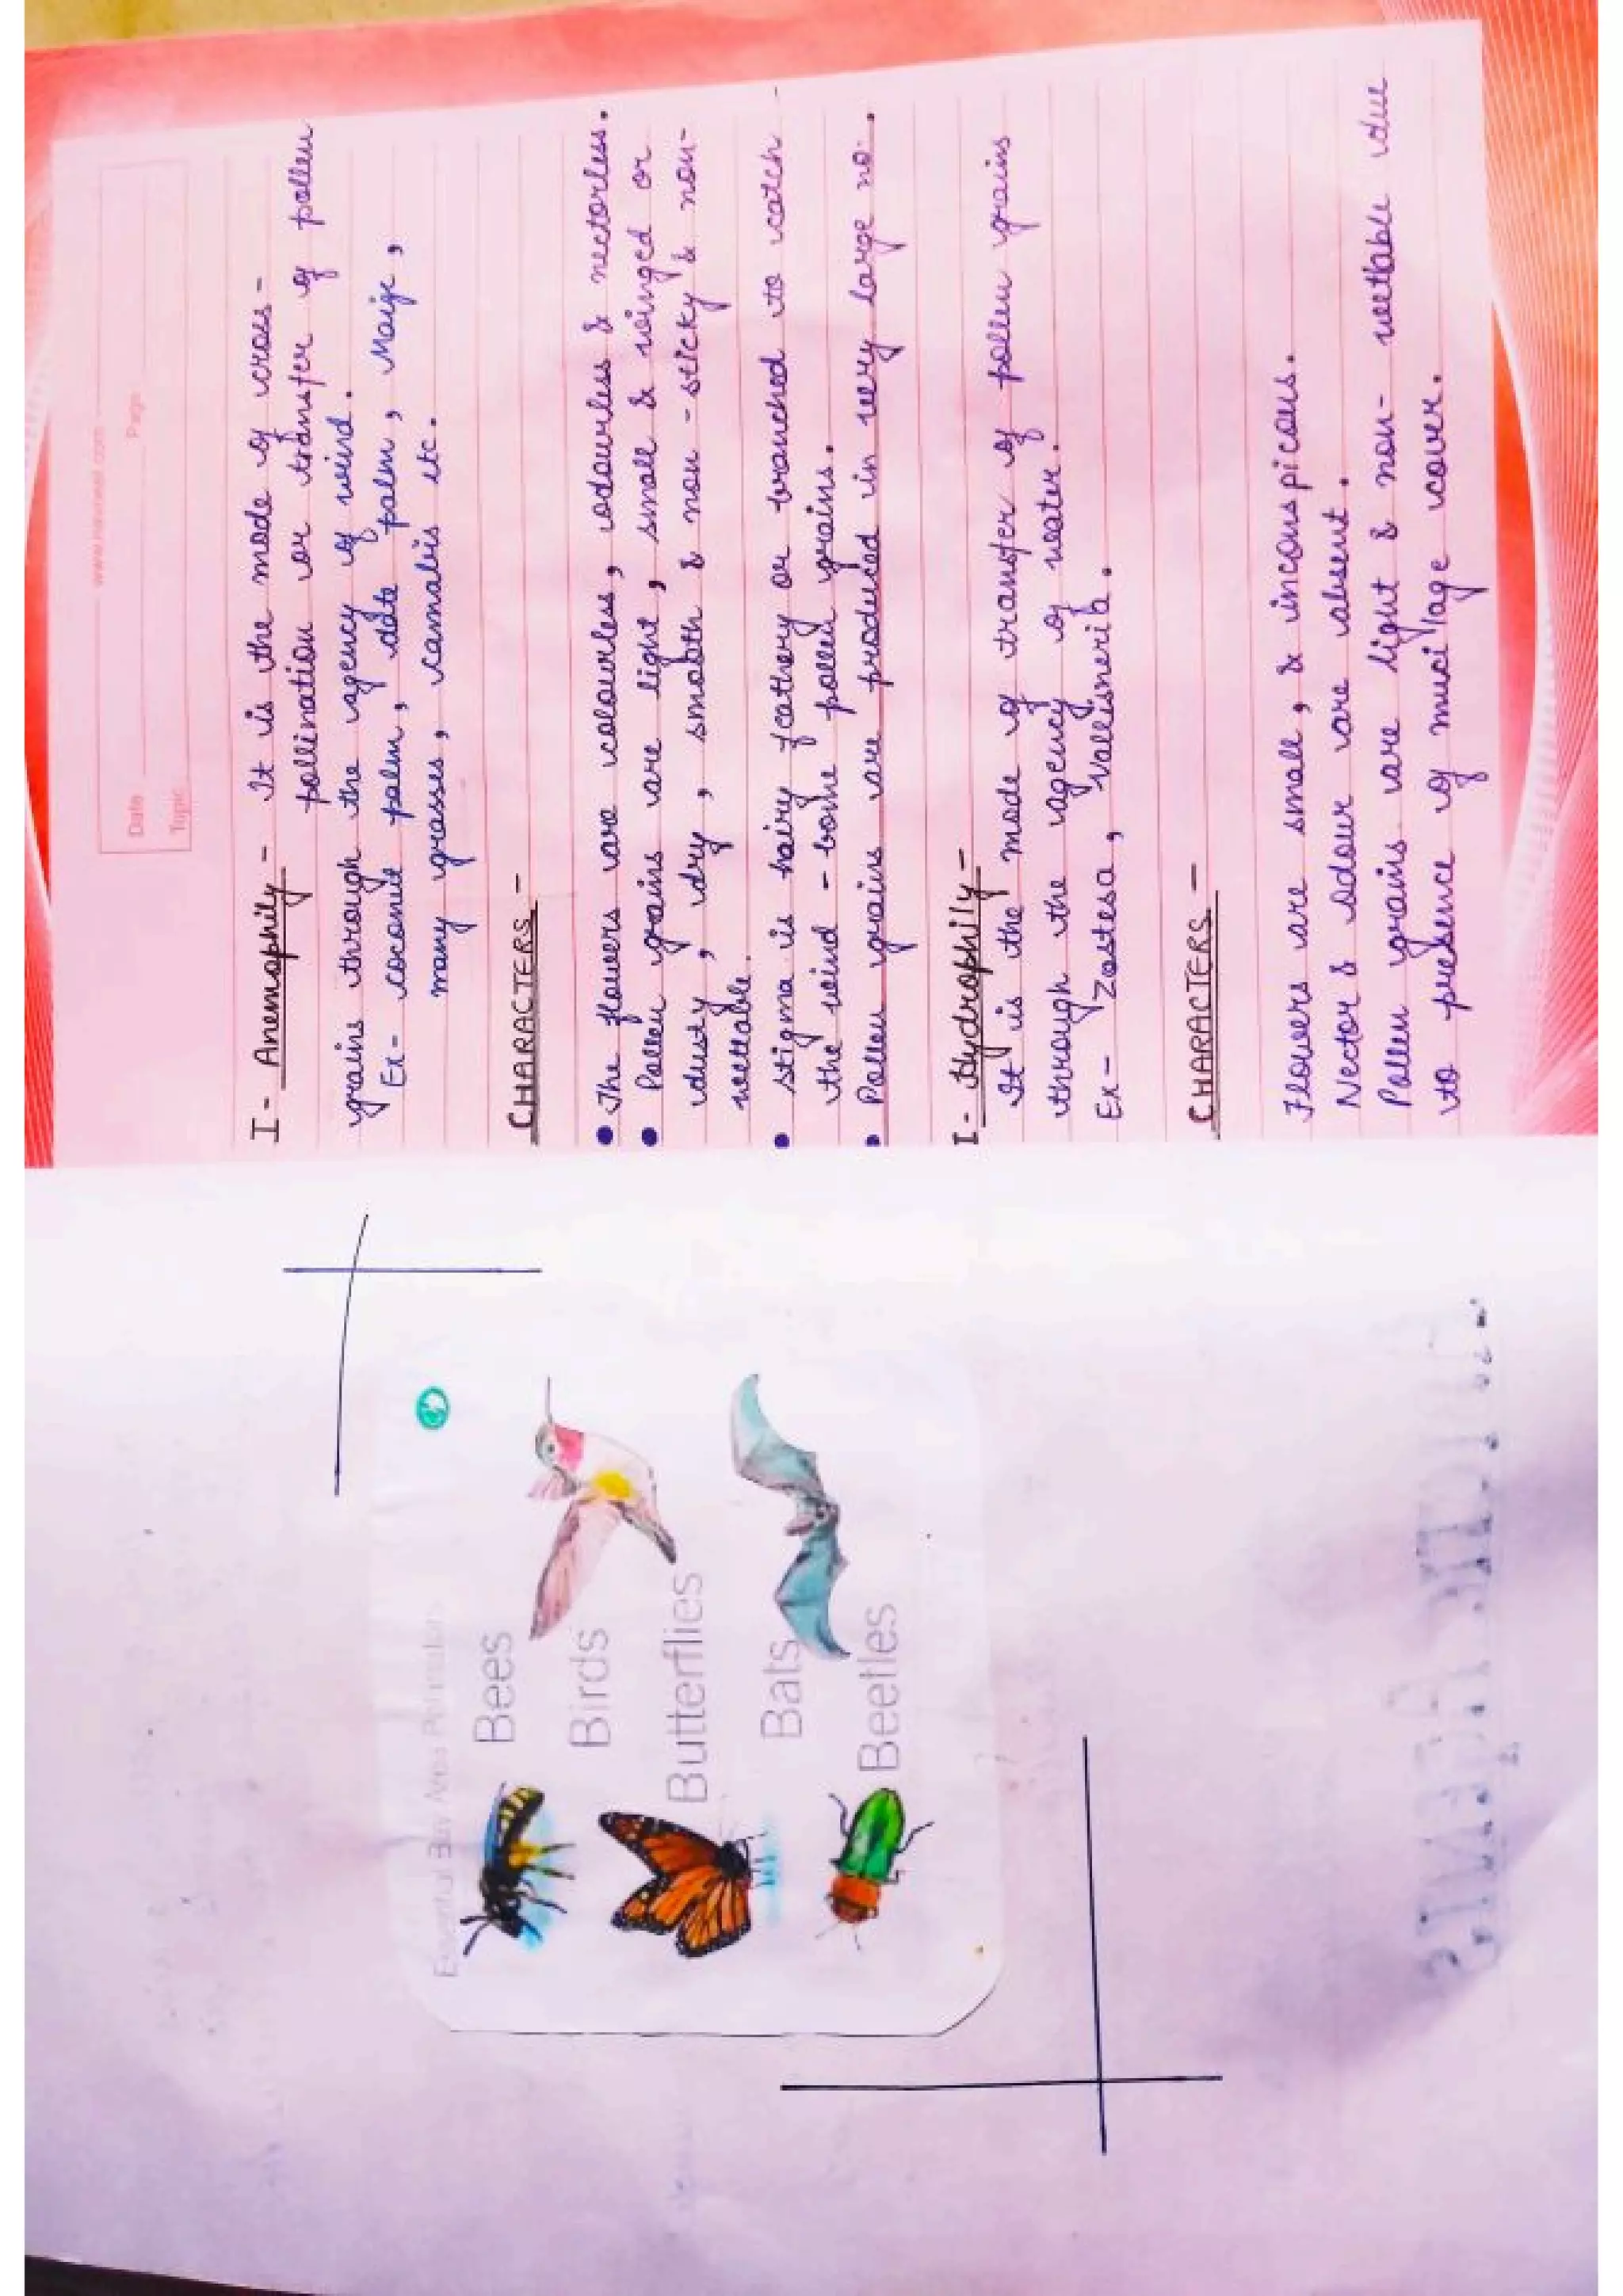 Bees
Birds
Butterflies
Bats
Beetles
Date
Page
Topic
I - Anemophily - It is the mode of cross -
pollination or transfer of pollen
grains through the agency of wind.
Ex- coconut palm, date palm, Maize,
many grasses, cannabis etc.
CHARACTERS -
• The flowers are colourless, odourless & nectorless.
• Pollen grains are light, small & winged or
dusty, dry, smooth & non-sticky & non-
wettable.
• Stigma is hairy feathery or branched to catch
the wind-borne pollen grains.
• Pollen grains are produced in very large no.
I - Hydrophily -
It is the mode of transfer of pollen grains
through the agency of water.
Ex- Zostesa, Vallisneria.
CHARACTERS -
Flowers are small, & inconspicous.
Nector & odour are absent.
Pollen grains are light & non-wettable due
to presence of mucilage cover.